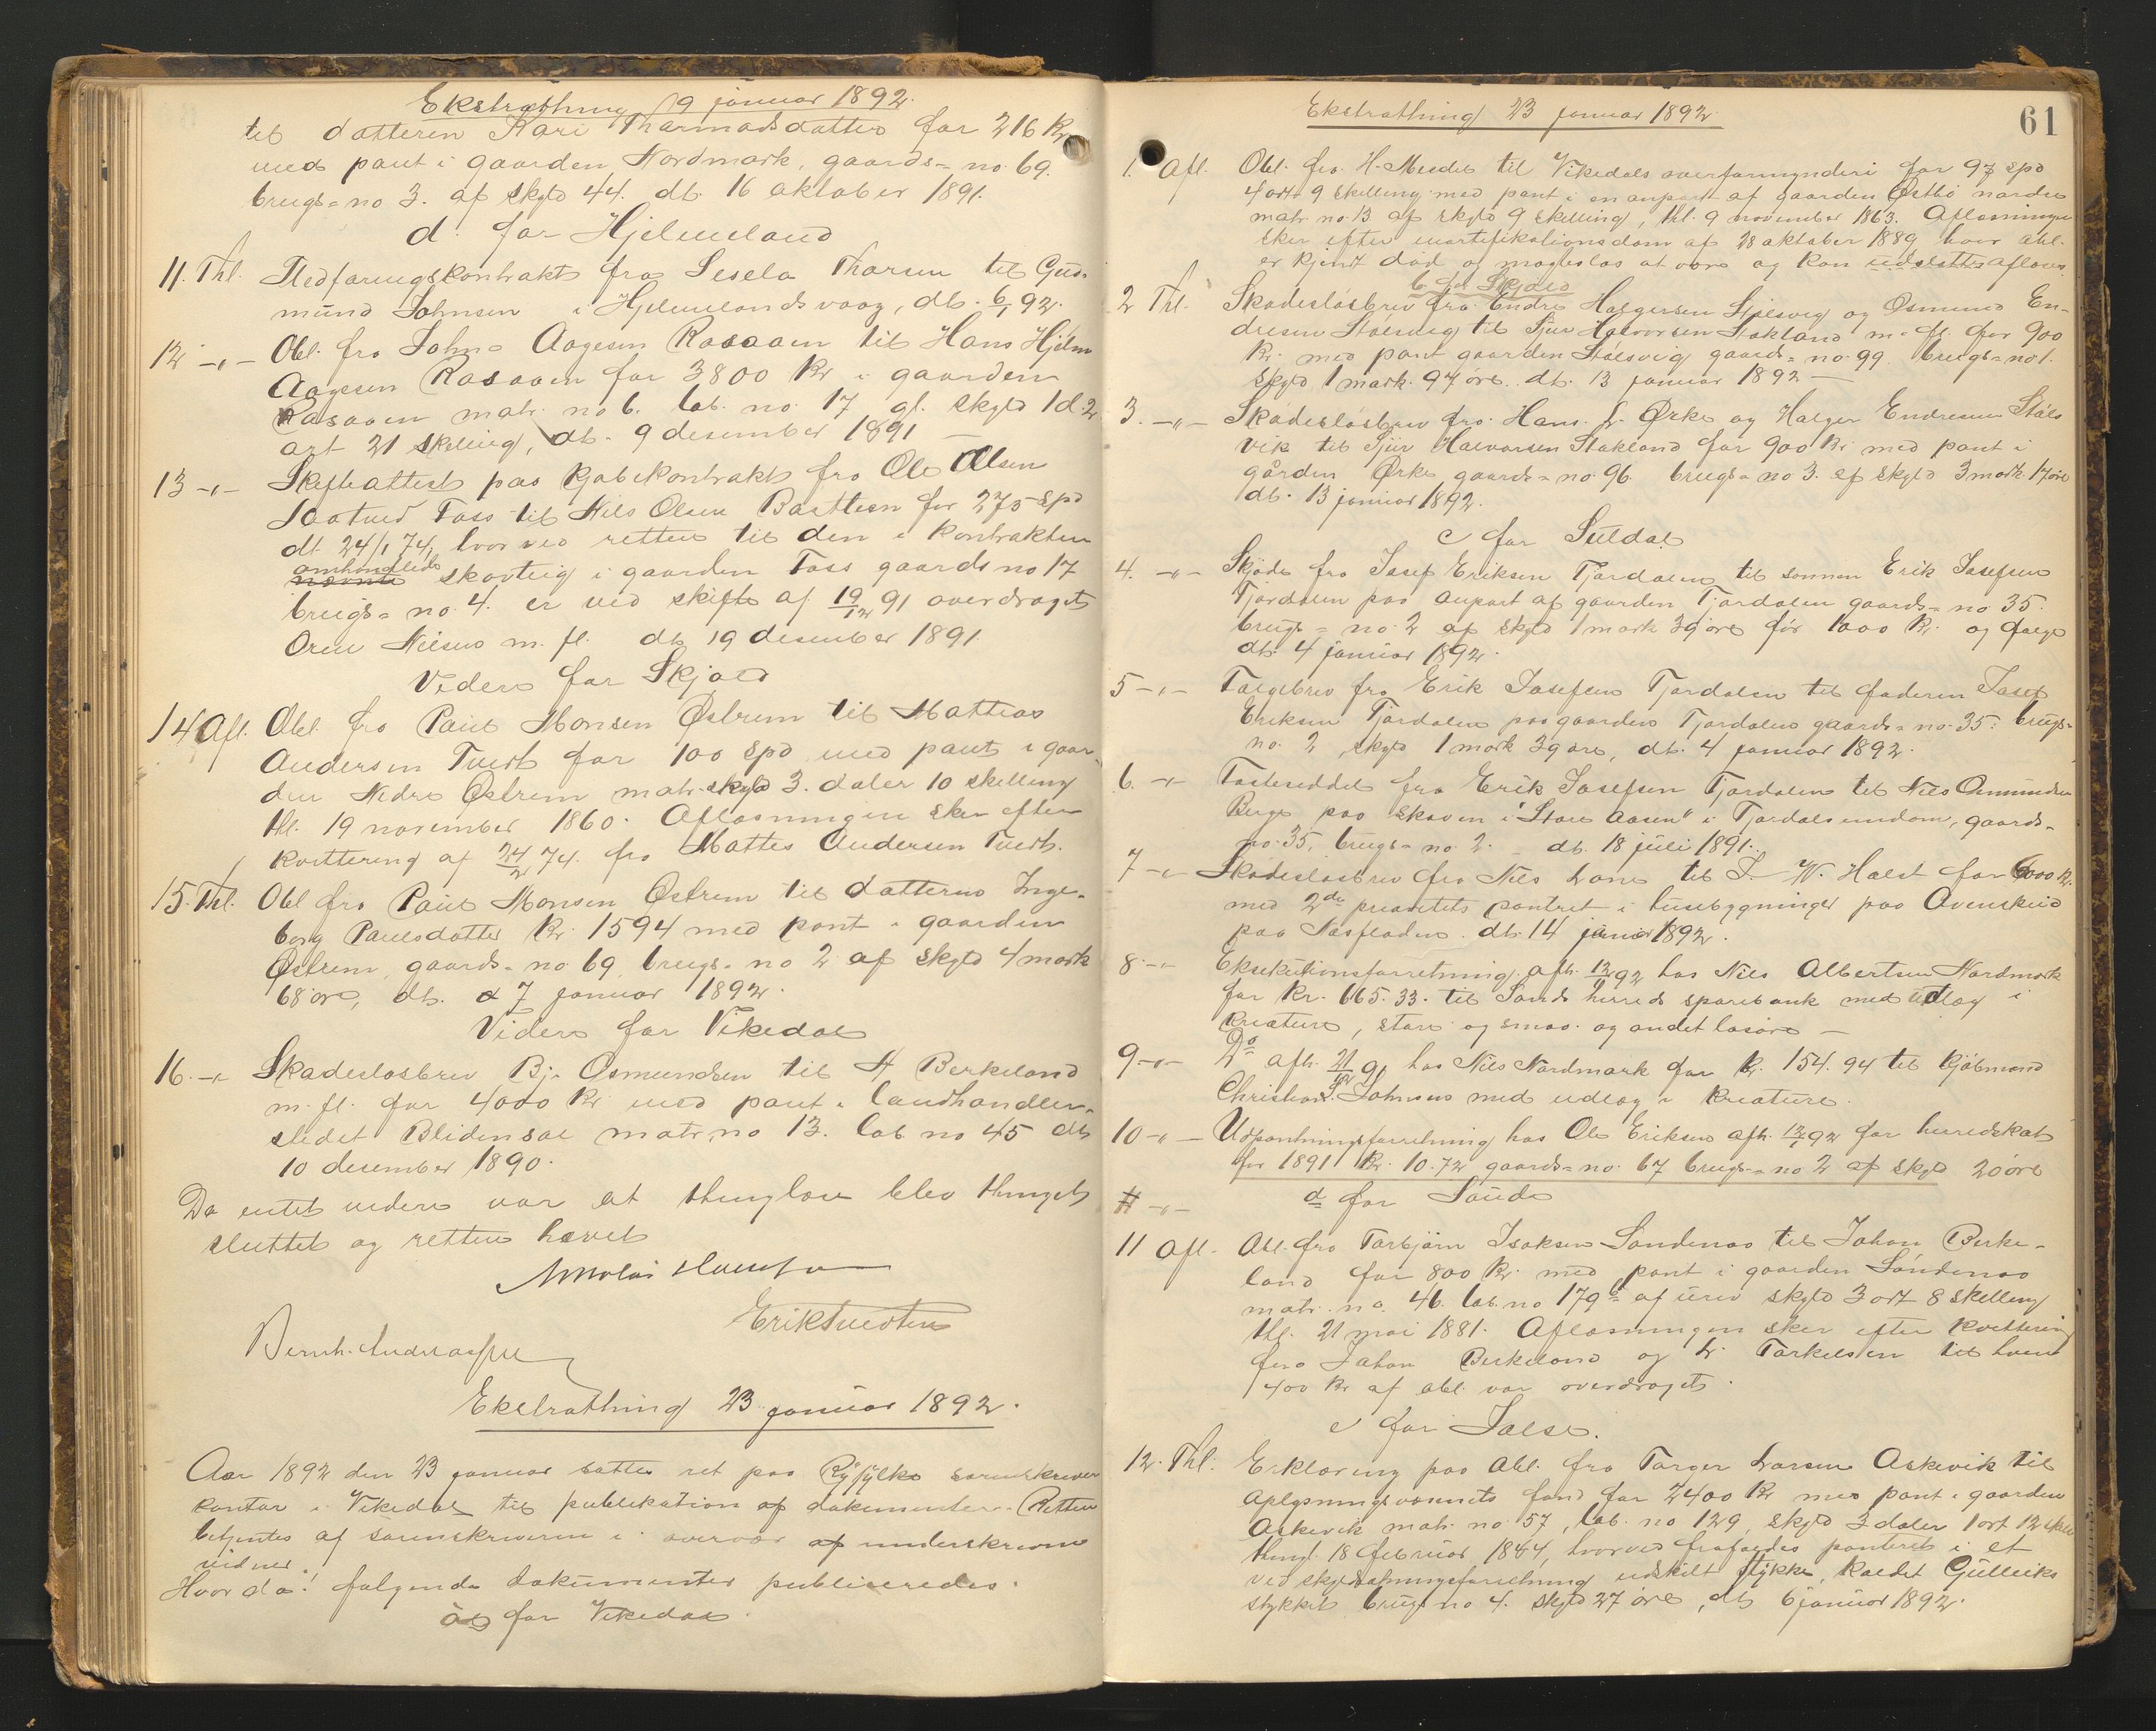 Ekstrathing 9 januar 1892.
til datteren Kari Thormodsdatter for 216 Kr
med pant i gaarden Nordmark, gaards-no. 69.
brugs-no 3. af skyld 44. dt. 16 oktober 1891.
d. for Hjelmeland
11. Thl. Fledføringskontrakt fra Sesela Thorsen til Gud-
mund Johnsen i Hjelmelandsvaag, dt. 6/1 92.
12 -"- Obl. fra John Aagesen Rasaaen til Hans Hjelm
Aagesen Rasaaen for 3800 Kr i gaarden
Rasaaen matr. no 6. løb. no. 17 gl. skyld 1 d. 2
ort 21 skilling, dt. 9 desember 1891
13 -"- Skifteattest paa kjøbekontrakt fra Ole Olsen
Foss til Nils Olsen for 275 spd
dt 24/1 74, hvorved retten til den i kontrakten
omhandlede nævnte skovteig i gaarden Foss gaards no 17
brugs-no. 4. er ved skifte af 19/12 91 overdraget
Orm Nilsen m. fl. dt. 19 desember 1891.
Videre for Skjold
14 Afl. Obl. fra Paul Monsen Østrem til Mattias
Andersen Tveit for 100 spd med pant i gaar-
den Nedre Østrem matr. skyld 3. daler 10 skilling
thl. 19 november 1860. Afløsningen sker efter
kvittering af 24/2 74. fra Mattis Andersen Tveit.
15. Thl. Obl fra Paul Monsen Østrem til datteren Inge-
borg Paulsdatter Kr. 1594 med pant i gaarden
Østrem, gaards-no 69, brugs-no 2 af skyld 4 mark
68 øre, dt. d 7 januar 1892.
Videre for Vikedal
16. -"- Skadesløsbrev Bj. Osmundsen til H Berkeland
m. fl. for 4000 Kr med pant i landhandler-
stedet Blidensol matr. no 13. løb no 45 dt
10 desember 1890.
Da intet videre var at thinglæse blev thinget
sluttet og retten hævet
Erik Tvedten
Ekstrathing 23 januar 1892.
Aar 1892 den 23 januar sattes ret paa Ryfylke sorenskriver
kontor i Vikedal til publikation af dokumenter. Retten
betjentes af sorenskriveren i overvær af underskrevne
vidner.
Hvor da! følgende dokumenter publiseredes.
a for Vikedal.
Ekstrathing 23 januar 1892.
61
1. Afl. Obl. fra H. til Vikedals overformynderi for 97 spd
4 ort 9 skilling med pant i en anpart af gaarden Østbø nordre
matr. no. 13 af skyld 9 skilling, thl. 9 november 1863. Afløsningen
sker efter mortifikationsdom af 28 oktober 1889, hvor obl.
er kjendt død o magtesløs at være og kan udslettes afløses
b for Skjold
2 Thl. Skadesløsbrev fra Endre Holgersen Stølsvig og Osmund En-
dresen Stølsvig til Sjur Halvorsen Stokland m. fl. for 900
Kr. med pant gaarden Stølsvig gaards-no. 99 brugs-no 1.
skyld 1 mark. 97 øre. dt. 13 januar 1892
3. -"- Skadesløsbrev fra Hans L. Ørke og Holger Endresen Støls
vik til Sjur Halvorsen Stokland for 900 Kr. med pant i
gården Ørke gaards-no. 96 brugs-no 3. af skyld 3 mark 17 øre
dt. 13 januar 1892.
c for Suldal
4. -"- Skjøde fra Josef Eriksen Tjørdalen til sønnen Erik Josefsen
Tjørdalen paa anpart af gaarden Tjørdalen gaards-no 35.
brugs-no. 2 af skyld 1 mark 39 øre for 1000 Kr. og følge
dt. 4 januar 1892.
5 -"- Følgebrev fra Erik Josefsen Tjørdalen til faderen Josef
Eriksen Tjørdalen paa gaarden Tjørdalen gaards-no. 35. brugs-
no. 2, skyld 1 mark 39 øre, dt. 4 januar 1892.
6. -"- Festeseddel fra Erik Josefsen Tjørdalen til Nils Osmundsen
Berge paa skoven i "Store Aasen" i Tjørdals eiendom, gaards-
no. 35, brugs-no. 2. dt. 18 juli 1891.
7 -"- Skadesløsbrev fra Nils Lone til J. W. Holst for 6000 Kr.
med 2de prioritets panteret i husebygninger paa Øvenskeid
paa Næsfladen. dt. 14 januar 1892.
8. -"- Eksekutionsforretning afh. 12/1 92 hos Nils Albertsen Nordmork
for Kr. 665.33. til Sands herreds sparebank med udlæg i
Kreature, store og smaa og andet løsøre
9 -"- Do afh. 21/12 91 hos Nils Nordmark for Kr. 154.94 til kjøbmand
Christian S. Johnsen med udlæg i Kreature.
10 -"- Udpantningsforretning hos Ole Eriksen afh. 12/1 92 for herredskat
for 1891 Kr. 10.72 gaards-no. 67 brugs-no 2 af skyld 20 øre
11 -"- d for Saude
11 Afl. Obl. fra Torbjørn Isaksen Søndenaa til Johan Berke-
land for 800 Kr. med pant i gaarden Søndenaa
matr. no. 46. løb. no 179 b af urev. skyld 3 ort 8 skilling
thl. 21 mai 1881. Afløsningen sker efter kvittering
fra Johan Berkeland og L. Torkelsen til hvem
400 Kr af obl. var overdraget.
e for Jelse.
12. Thl. Erklæring paa obl. fra Torger Larsen Askevik til
oplysningsvæsenets fond for 2400 Kr med pant i gaarden
Askevik matr. no. 57, løb. no 129, skyld 3 daler 1 ort 12 skill
thingl. 18 februar 1884, hvorved frafaldes panteret i et
ved skyldsætningsforretning udskilt stykke, kaldet Gulleiks
stykket brugs no 4. skyld 27 øre, dt 6 januar 1892.